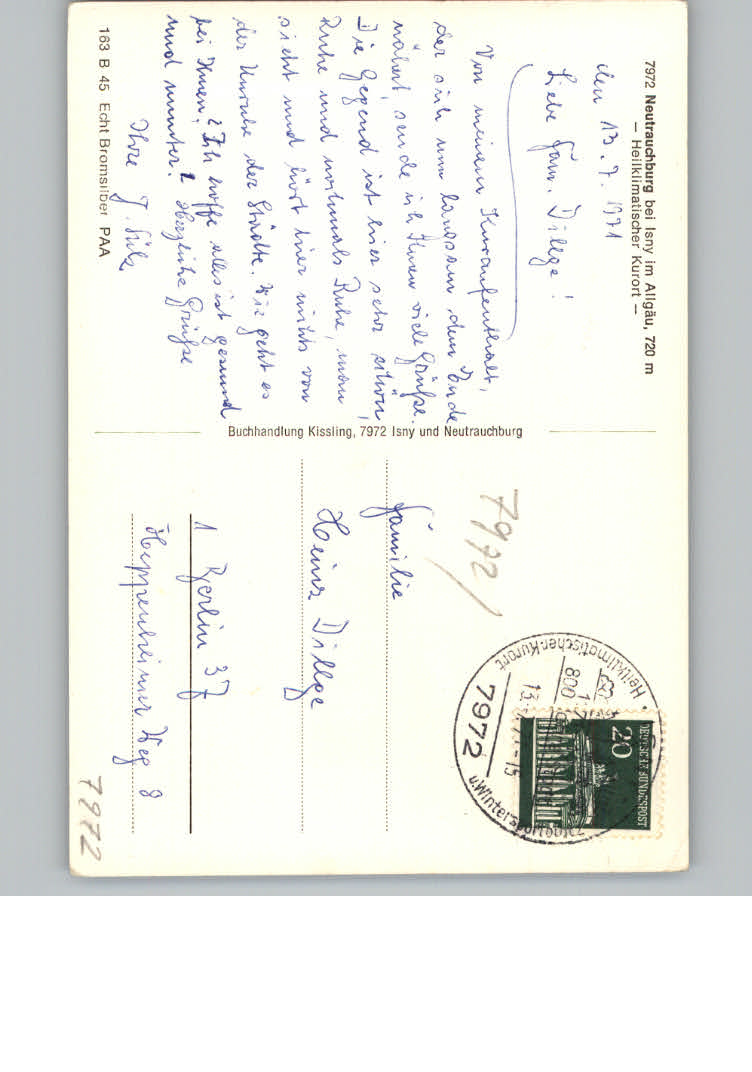 7972 Neutrauchburg bei Isny im Allgäu, 720 m
— Heilklimatischer Kurort —
den 13. 7. 1971
Liebe Fam. Dillge!
Von meinem Kuraufenthalt,
der sich nun langsam dem Ende
nähert, sende ich Ihnen viele Grüße.
Die Gegend ist hier sehr schön,
Ruhe und nochmals Ruhe, man
sieht und hört hier nichts von
der Unruhe der Städte. Wie geht es
bei Ihnen,? Ich hoffe alles ist gesund
und munter. Herzliche Grüße
Ihre J.
163 B 45 Echt Bromsilber PAA
Buchhandlung Kissling, 7972 Isny und Neutrauchburg
7972
Familie
Heinz Dillge
1 Berlin 37
Heppenheimer Weg 8
7972
Heilklimatischer-Kurort
800
13. 7. 71-15
7972
DEUTSCHE BUNDESPOST
20